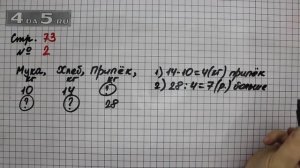 4DA-5.RU
Стр. 73
№ 2
Мука, Хлеб, Припёк,
кг кг кг
10 14 ?
? ? 28
1) 14-10=4(кг) припёк
2) 28:4=7(р.) больше